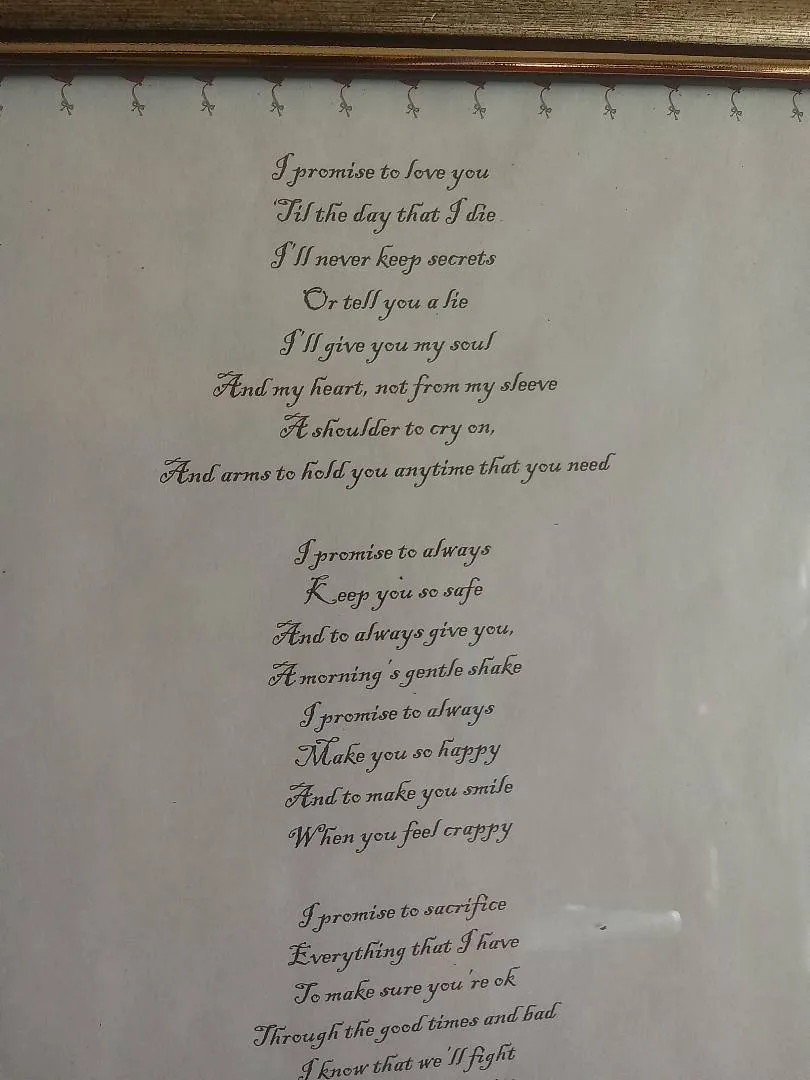 I promise to love you
'Til the day that I die
I'll never keep secrets
Or tell you a lie
I'll give you my soul
And my heart, not from my sleeve
A shoulder to cry on,
And arms to hold you anytime that you need
I promise to always
Keep you so safe
And to always give you,
A morning's gentle shake
I promise to always
Make you so happy
And to make you smile
When you feel crappy
I promise to sacrifice
Everything that I have
To make sure you're ok
Through the good times and bad
I know that we'll fight